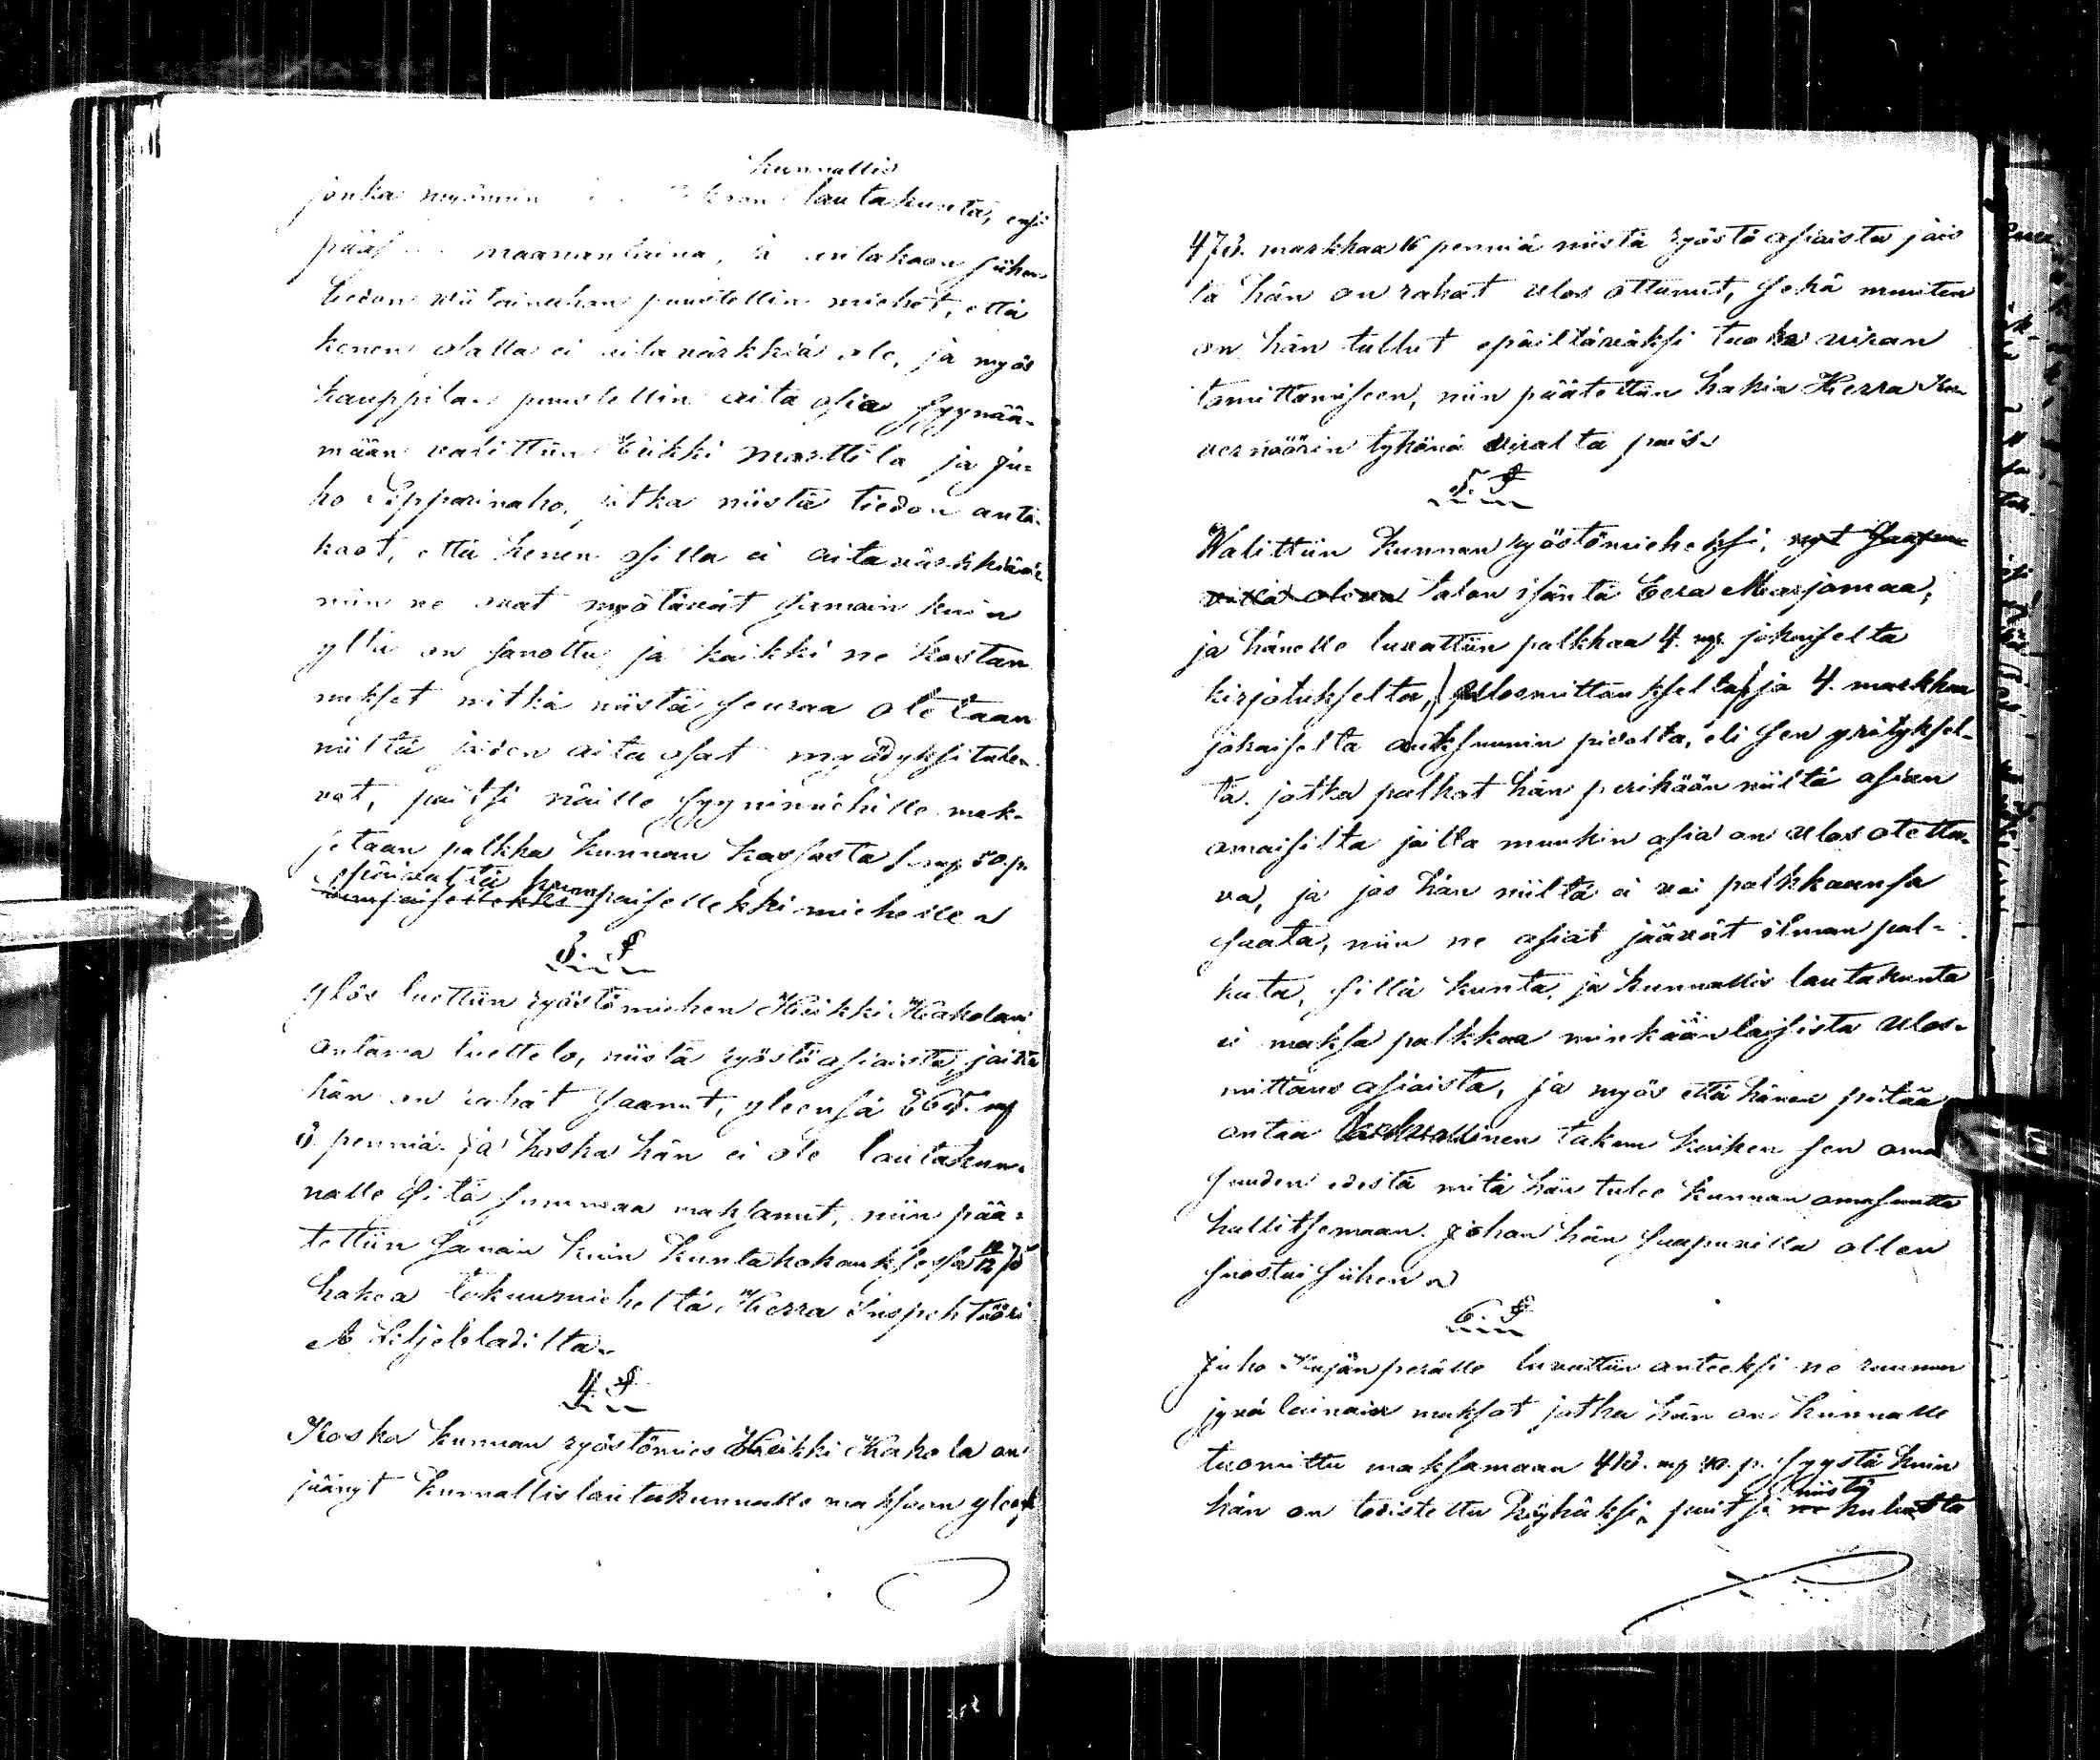 kunnallis
jonka myönnin lautakunta,
maananlaina, antakoon siihen
tiedon puustellin miehet, että
kenen osalla ei aitavärkkiä ole, ja myös
kauppilan puustellin aita osia syynää-
mään valittiin Eükki Marttila ja Ju-
ho Pipparinaho, jotka niistä tiedon anta-
koot, että kenen osilla ei aitavärkkiä ole
niin ne ovat myötävät samoin kuin
yllä on sanottu, ja kaikki ne kostan
nukset mitkä niistä seuraa otetaan
niiltä joiden aita osat myödyksi tule-
vat, paitsi näille syynimiehille mak-
setaan palkka kunnan kassasta 1 mp 50 p.
päivältä kum
paisellekki miehelle
3. §
ylös luettiin ryöstömiehen Heikki Kakolan
antama luettelo, niistä ryöstöasiaista, joista
hän on rahat saanut, yleensä mp
3 penniä. ja koska hän ei ole lautakun-
nalle sitä summaa maksanut, niin pää-
tettiin samoin kuin kuntakokouksessa 12 75
hakea takuumieheltä Herra Inspehtööri
A Liljebladilta
4. §
Koska kunnan ryöstömies Heikki Kakola on
jäänyt kunnallislautakunnalle maksoon yleens
473. markkaa 16 penniä niistä ryöstö asiaista jois
ta hän on rahat ulos ottanut, sekä muuten
on hän tullut epäiltäväksi tuoha viran
tomittamiseen, niin päätettiin hakia Herra Ku-
vernöörin tyhönä viralta pois
5. §
Walittiin kunnan ryöstömieheksi, nyt saapu
villa oleva talon isäntä Eera Marjamaa,
ja hänelle luvattiin palkkaa 4. mp. jokaiselta
kirjotukselta, (ulosmittaukselta) ja 4. markkaa
jokaiselta auksuunin pidolta, eli sen yrityksel-
tä. jotka palkat hän perikään niiltä asian
omaisilta joilta muukin asia on ulos otetta-
va, ja jos hän niiltä ei voi palkkaansa
saata, niin ne asiat jäävät ilman pal-
kata, sillä kunta, ja kunnallis lautakunta
ei maksa palkkaa minkäänlaisista ulos-
mittaus asiaista, ja myös että hänen pitää
antaa laakvallinen takuu kaiken sen oma
suuden edestä mitä hän tulee kunnan omasuutta
hallitsemaan. johon hän saapuvilla ollen
suostui siihen
6. §
Juho Kujänperälle luvattiin anteeksi ne ruunun
jyvä lainain maksot jotka hän on kunnalle
tuomittu maksamaan mp p. syystä kuin
hän on todistettu köyhäksi, paitsi ne niistä kuluista